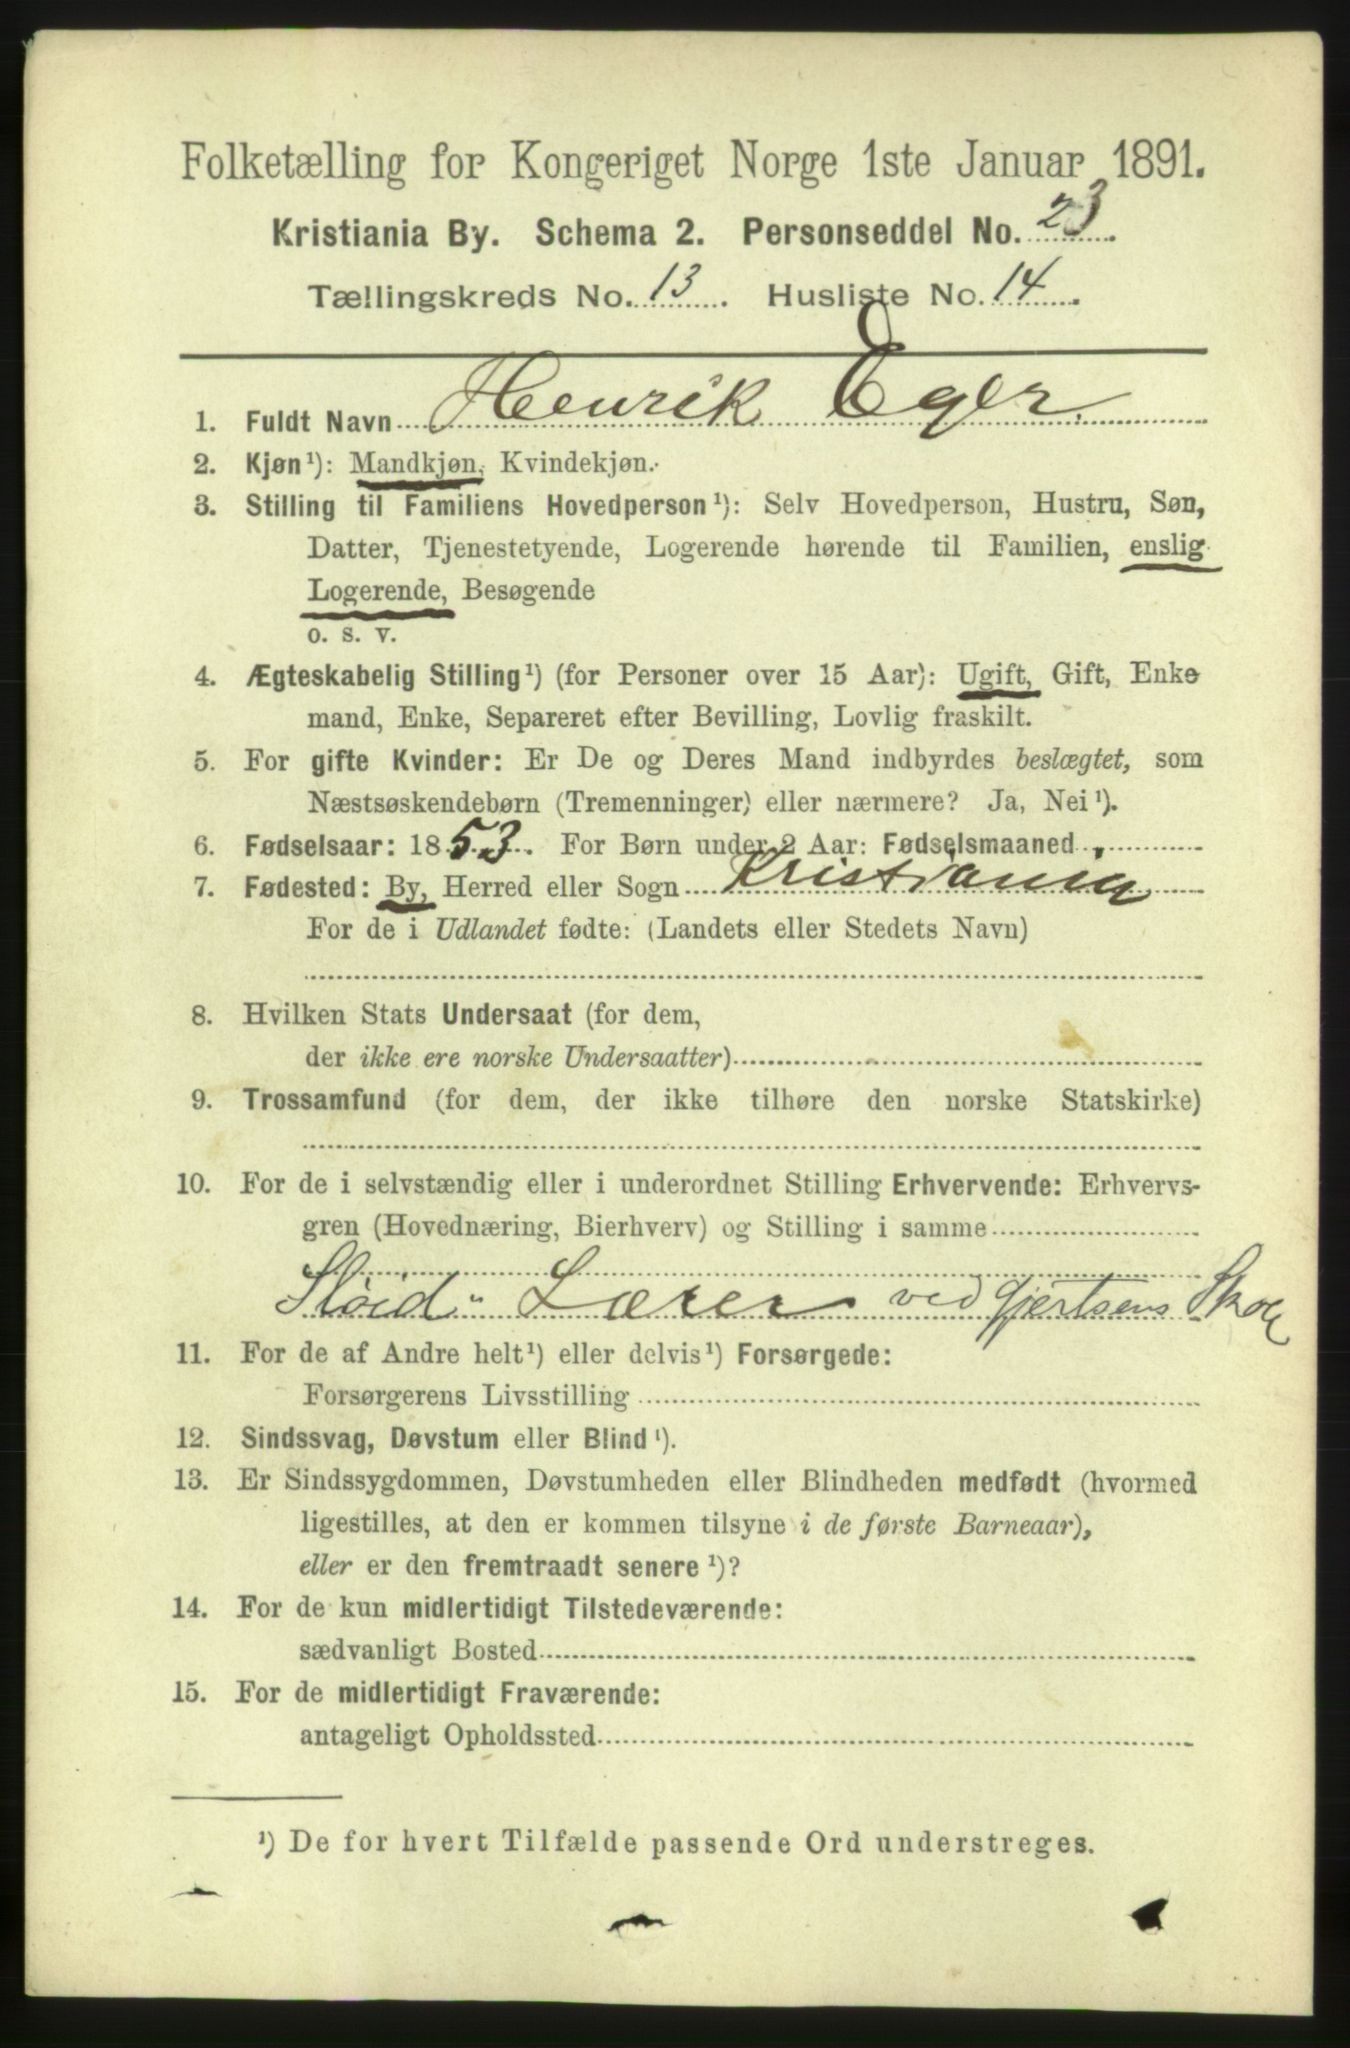 Folketælling for Kongeriget Norge 1ste Januar 1891.
Kristiania By. Schema 2. Personseddel No. 23.
Tællingskreds No. 13. Husliste No. 14.
1. Fuldt Navn Henrik Eger.
2. Kjøn¹): Mandkjøn, Kvindekjøn.
3. Stilling til Familiens Hovedperson¹): Selv Hovedperson, Hustru, Søn,
Datter, Tjenestetyende, Logerende hørende til Familien, enslig
Logerende, Besøgende
o. s. v.
4. Ægteskabelig Stilling¹) (for Personer over 15 Aar): Ugift, Gift, Enke
mand, Enke, Separeret efter Bevilling, Lovlig fraskilt.
5. For gifte Kvinder: Er De og Deres Mand indbyrdes beslægtet, som
Næstsøskendebørn (Tremenninger) eller nærmere? Ja, Nei¹).
6. Fødselsaar: 1853. For Børn under 2 Aar: Fødselsmaaned
7. Fødested: By, Herred eller Sogn Kristiania
For de i Udlandet fødte: (Landets eller Stedets Navn)
8. Hvilken Stats Undersaat (for dem,
der ikke ere norske Undersaatter)
9. Trossamfund (for dem, der ikke tilhøre den norske Statskirke)
10. For de i selvstændig eller i underordnet Stilling Erhvervende: Erhvervs-
gren (Hovednæring, Bierhverv) og Stilling i samme
Sløid-Lærer ved Gjertsens Skole
11. For de af Andre helt¹) eller delvis¹) Forsørgede:
Forsørgerens Livsstilling
12. Sindssvag, Døvstum eller Blind¹).
13. Er Sindssygdommen, Døvstumheden eller Blindheden medfødt (hvormed
ligestilles, at den er kommen tilsyne i de første Barneaar),
eller er den fremtraadt senere¹)?
14. For de kun midlertidigt Tilstedeværende:
sædvanligt Bosted
15. For de midlertidigt Fraværende:
antageligt Opholdssted
¹) De for hvert Tilfælde passende Ord understreges.